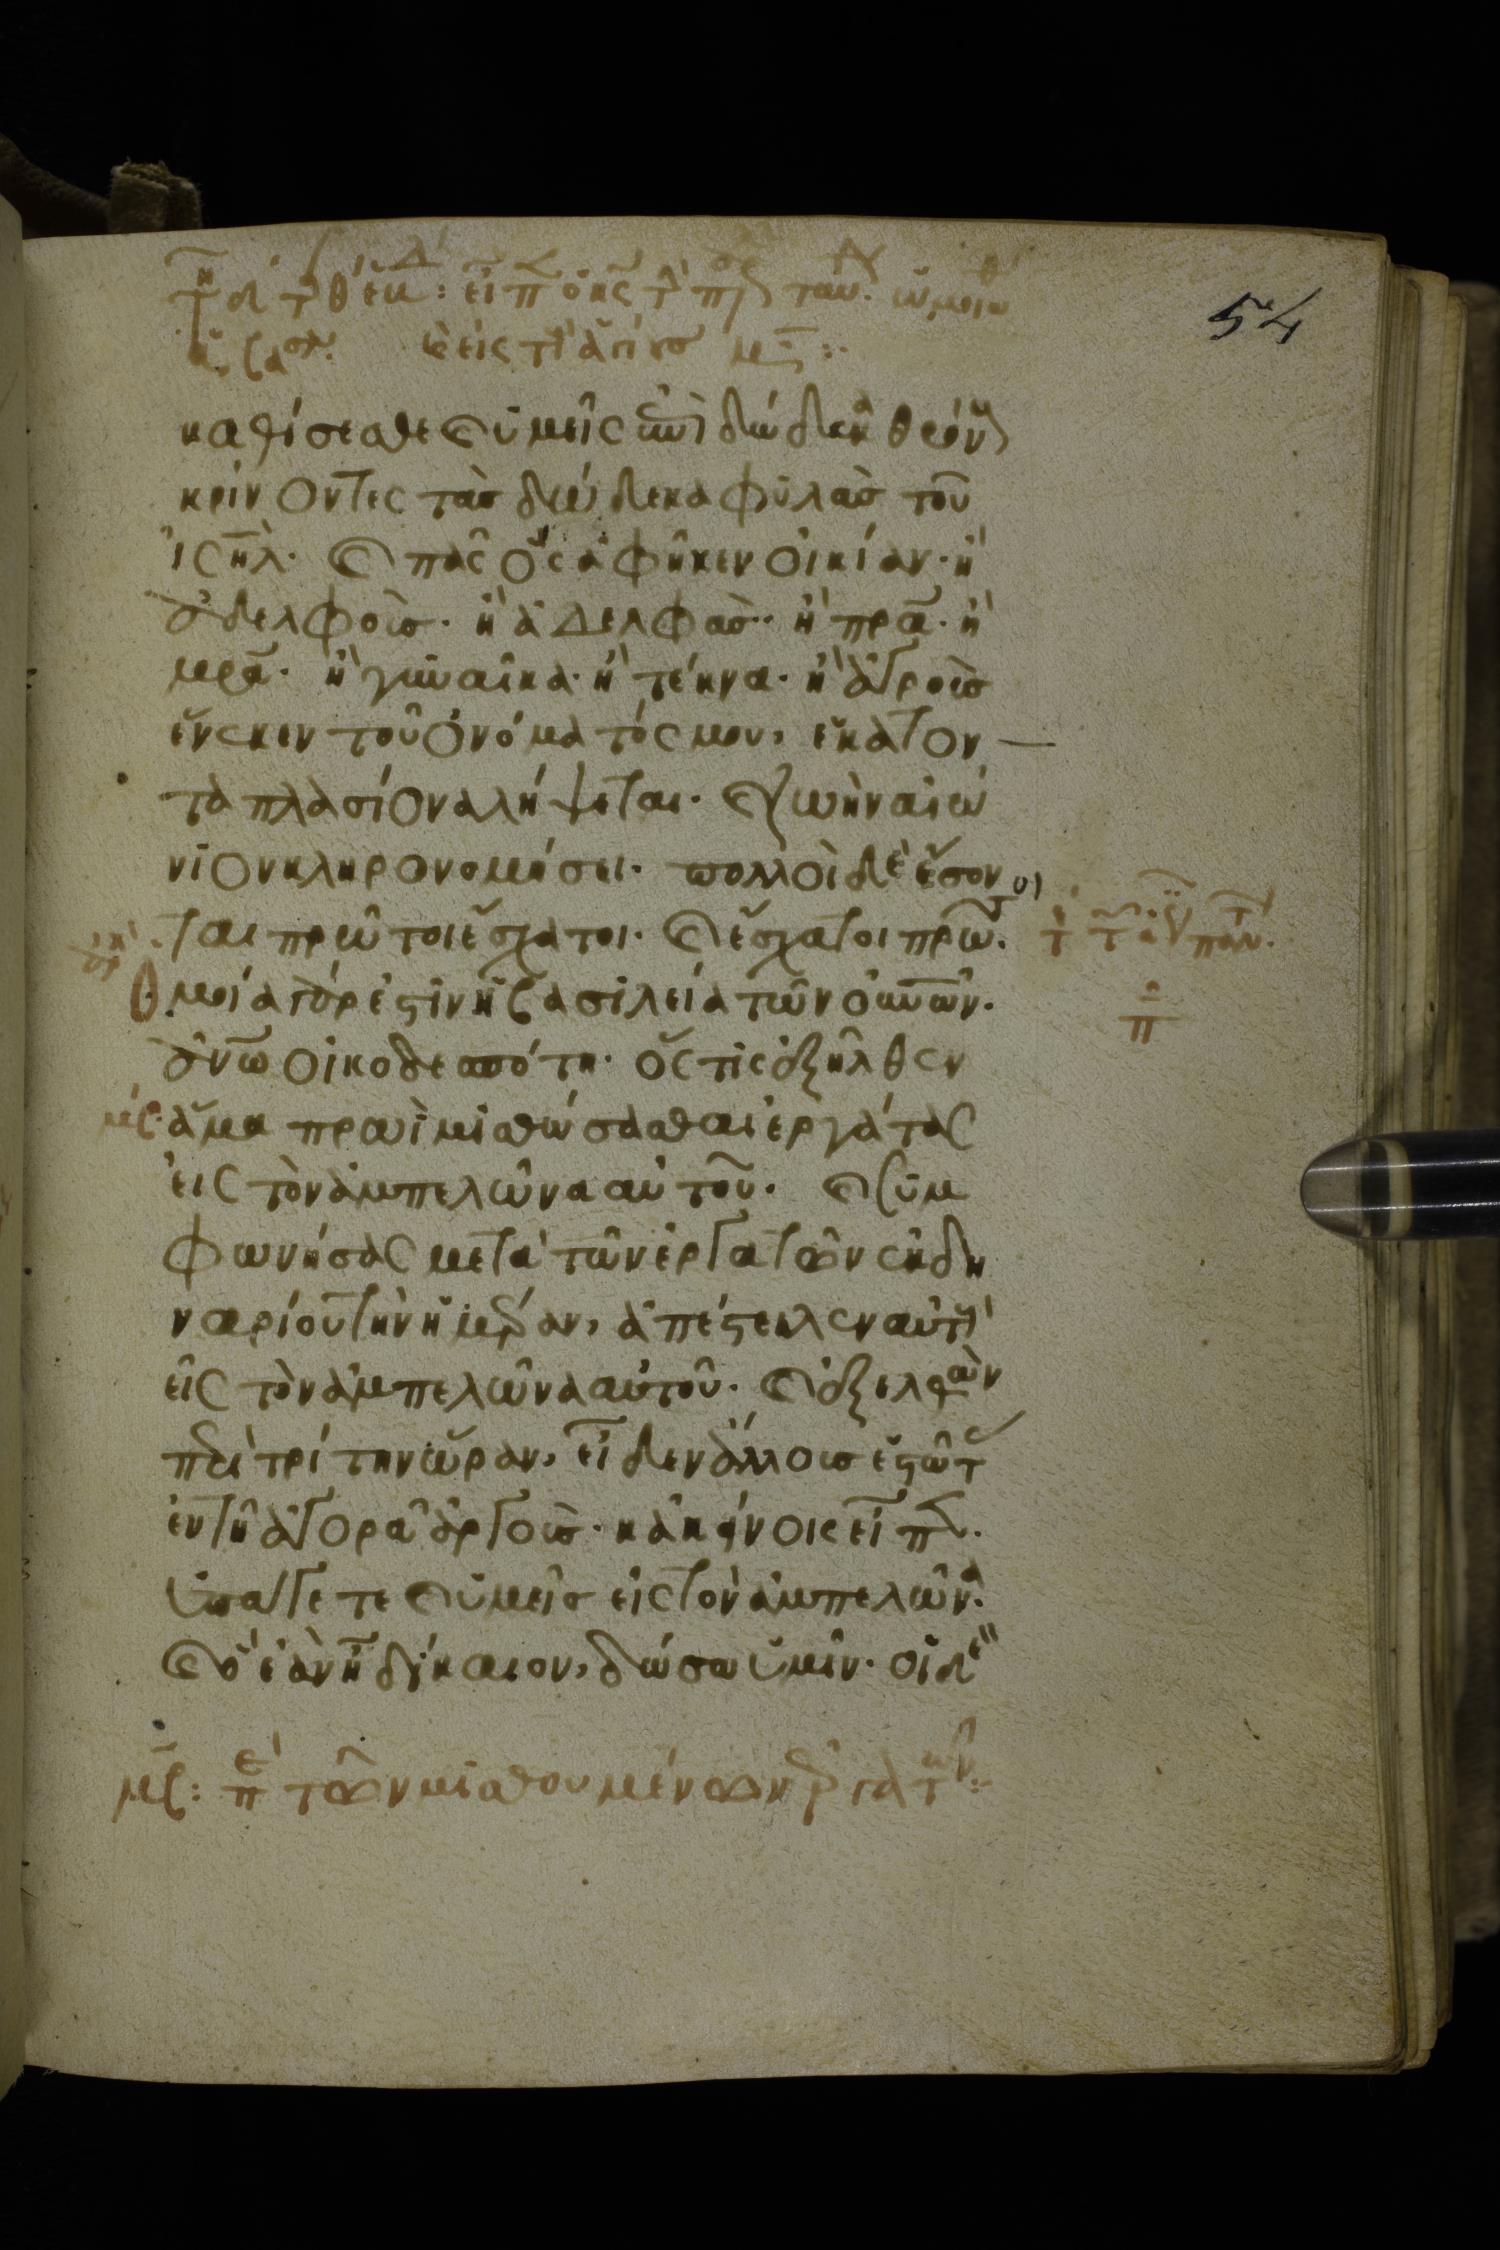 54
καθίσεσθε καὶ ὑμεῖς ἐπὶ δώδεκα θρόν
κρίνοντες τὰς δώδεκα φυλὰς τοῦ
ἰσηλ. καὶ πᾶς ὃς ἀφῆκεν οἰκίαν· ἢ
ἀδελφοὺς· ἢ ἀδελφὰς· ἢ πρα· ἢ
μρα· ἢ γυναῖκα· ἢ τέκνα· ἢ ἀγροὺς
ἕνεκεν τοῦ ὀνόματός μου, ἑκατον
ταπλασίονα λήψεται· καὶ ζωὴν αἰώ
νιον κληρονομήσει· πολλοὶ δὲ ἔσον
ται πρῶτοι ἔσχατοι· καὶ ἔσχατοι πρῶτοι.
Ὁμοία γάρ ἐστιν ἡ βασιλεία τῶν οὐνων.
ἀνω οἰκοδεσπότη· ὅστις ἐξῆλθεν
ἅμα πρωῒ μισθώσασθαι ἐργάτας
εἰς τὸν ἀμπελῶνα αὐτοῦ. καὶ συμ
φωνήσας μετὰ τῶν ἐργατῶν ἐκ δη
ναρίου τὴν ἡμέραν, ἀπέστειλεν αὐτοὺς
εἰς τὸν ἀμπελῶνα αὐτοῦ. καὶ ἐξελθὼν
περὶ τρίτην ὥραν, εἶδεν ἄλλους ἑστῶτας
ἐν τῇ ἀγορᾷ ἀργοὺς· κἀκείνοις εἶπεν.
ὑπάγετε καὶ ὑμεῖς εἰς τὸν ἀμπελῶνα.
καὶ ὃ ἐὰν ᾖ δίκαιον, δώσω ὑμῖν· οἱ δὲ
μζ: περὶ τῶν μισθουμένων ἐργατῶν: